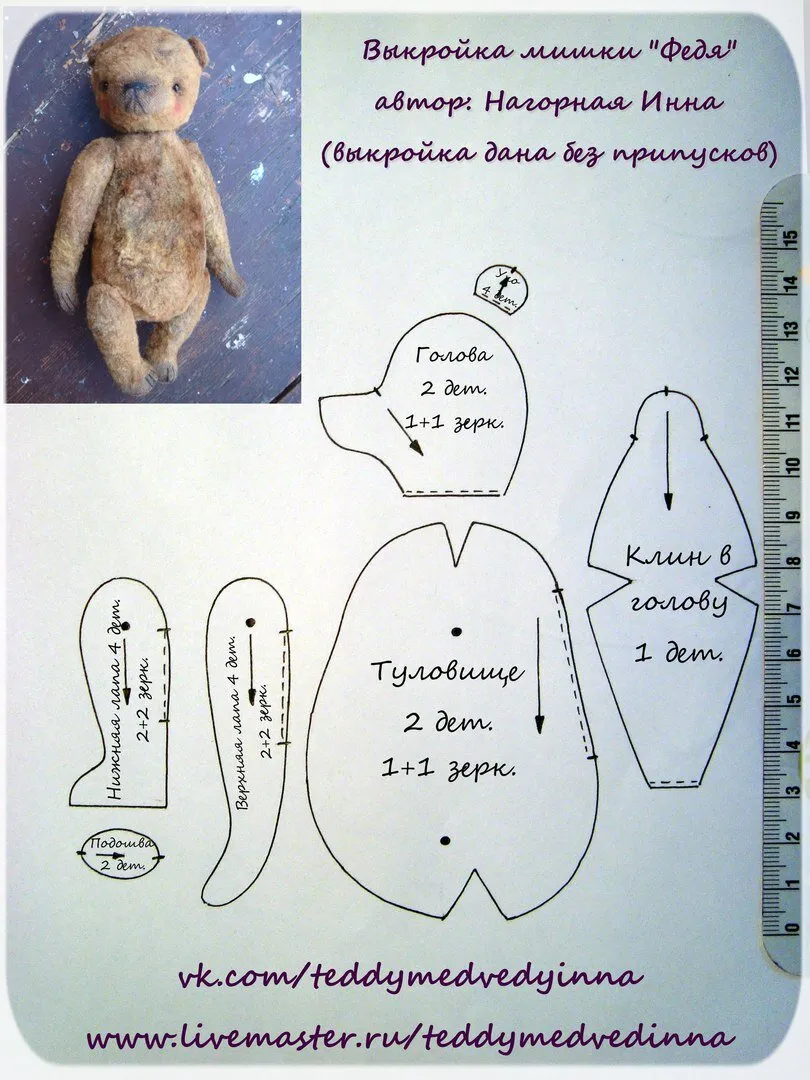 Выкройка мишки "Федя"
автор: Нагорная Инна
(выкройка дана без припусков)
Ухо
4 дет.
Голова
2 дет.
1+1 зерк.
Клин в
голову
1 дет.
Нижняя лапа 4 дет.
2+2 зерк.
Верхняя лапа 4 дет.
2+2 зерк.
Туловище
2 дет.
1+1 зерк.
Подошва
2 дет.
15
14
13
12
11
10
9
8
7
6
5
4
3
2
1
0
vk.com/teddymedvedyinna
www.livemaster.ru/teddymedvedinna